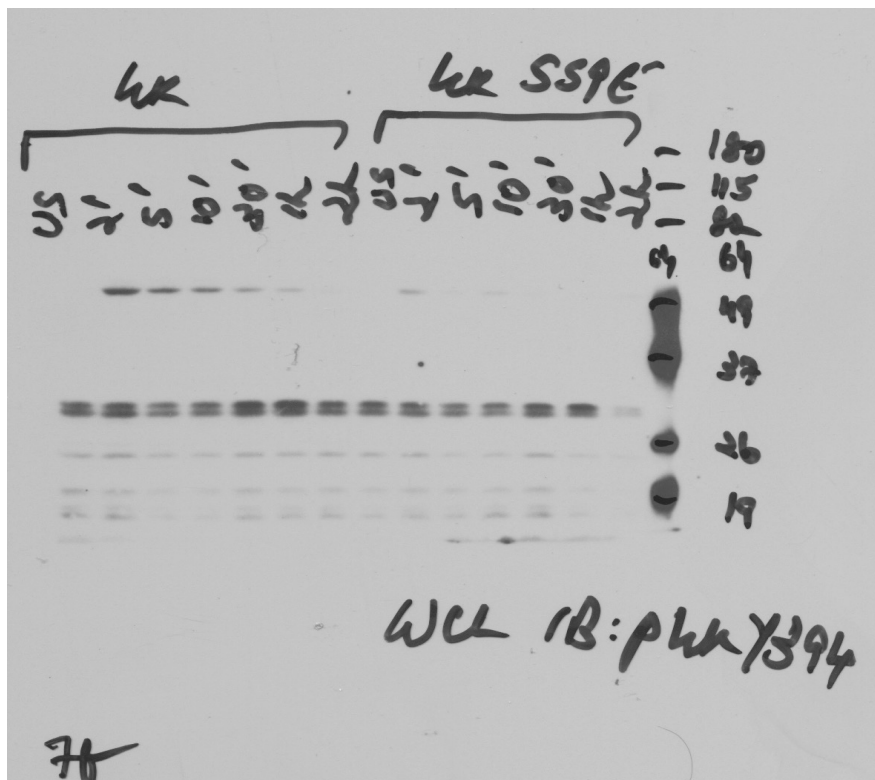 Lck Lck S59E
US 2' 5' 10' 30' 1h 2h US 2' 5' 10' 30' 1h 2h
180
115
82
64 64
49
37
26
19
WCL IB: pLck Y394